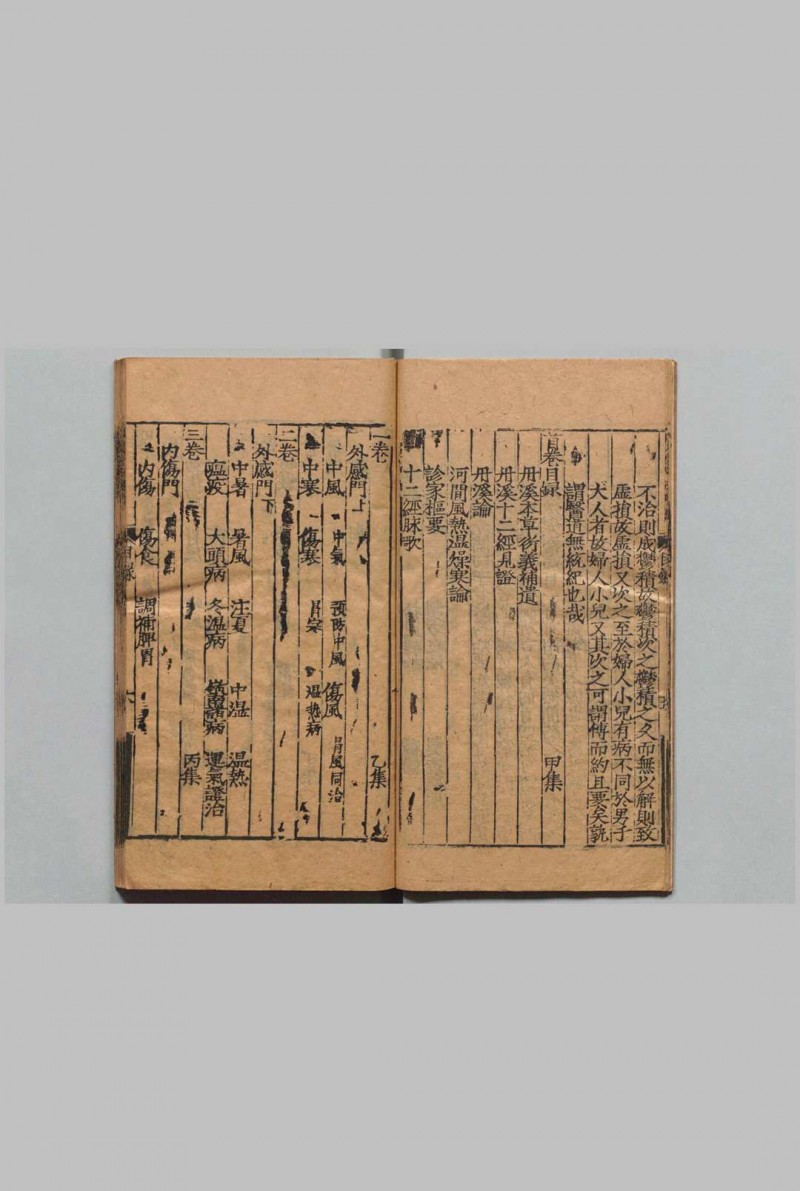 不治則成鬱積故鬱積次之鬱積之久而無以解則致
虛損故虛損又次之至於婦人小兒有病不同於男子
大人者故婦人小兒又其次之可謂博而約且要矣孰
謂醫道無統紀也哉
首卷目録 甲集
丹溪本草衍義補遺
丹溪十二經見證
丹溪論
河間風熱溫燥寒論
診家樞要
十二經脉歌
一卷 乙集
外感門上
中風 中氣 預防中風 傷風 胃風同治
中寒 傷寒 温熱病
二卷
外感門下
中暑 暑風 注夏 中濕 温熱
瘟疫 大頭病 冬温病 諸病 運氣證治
三卷 丙集
内傷門
内傷 傷食 調補脾胃
目録 六